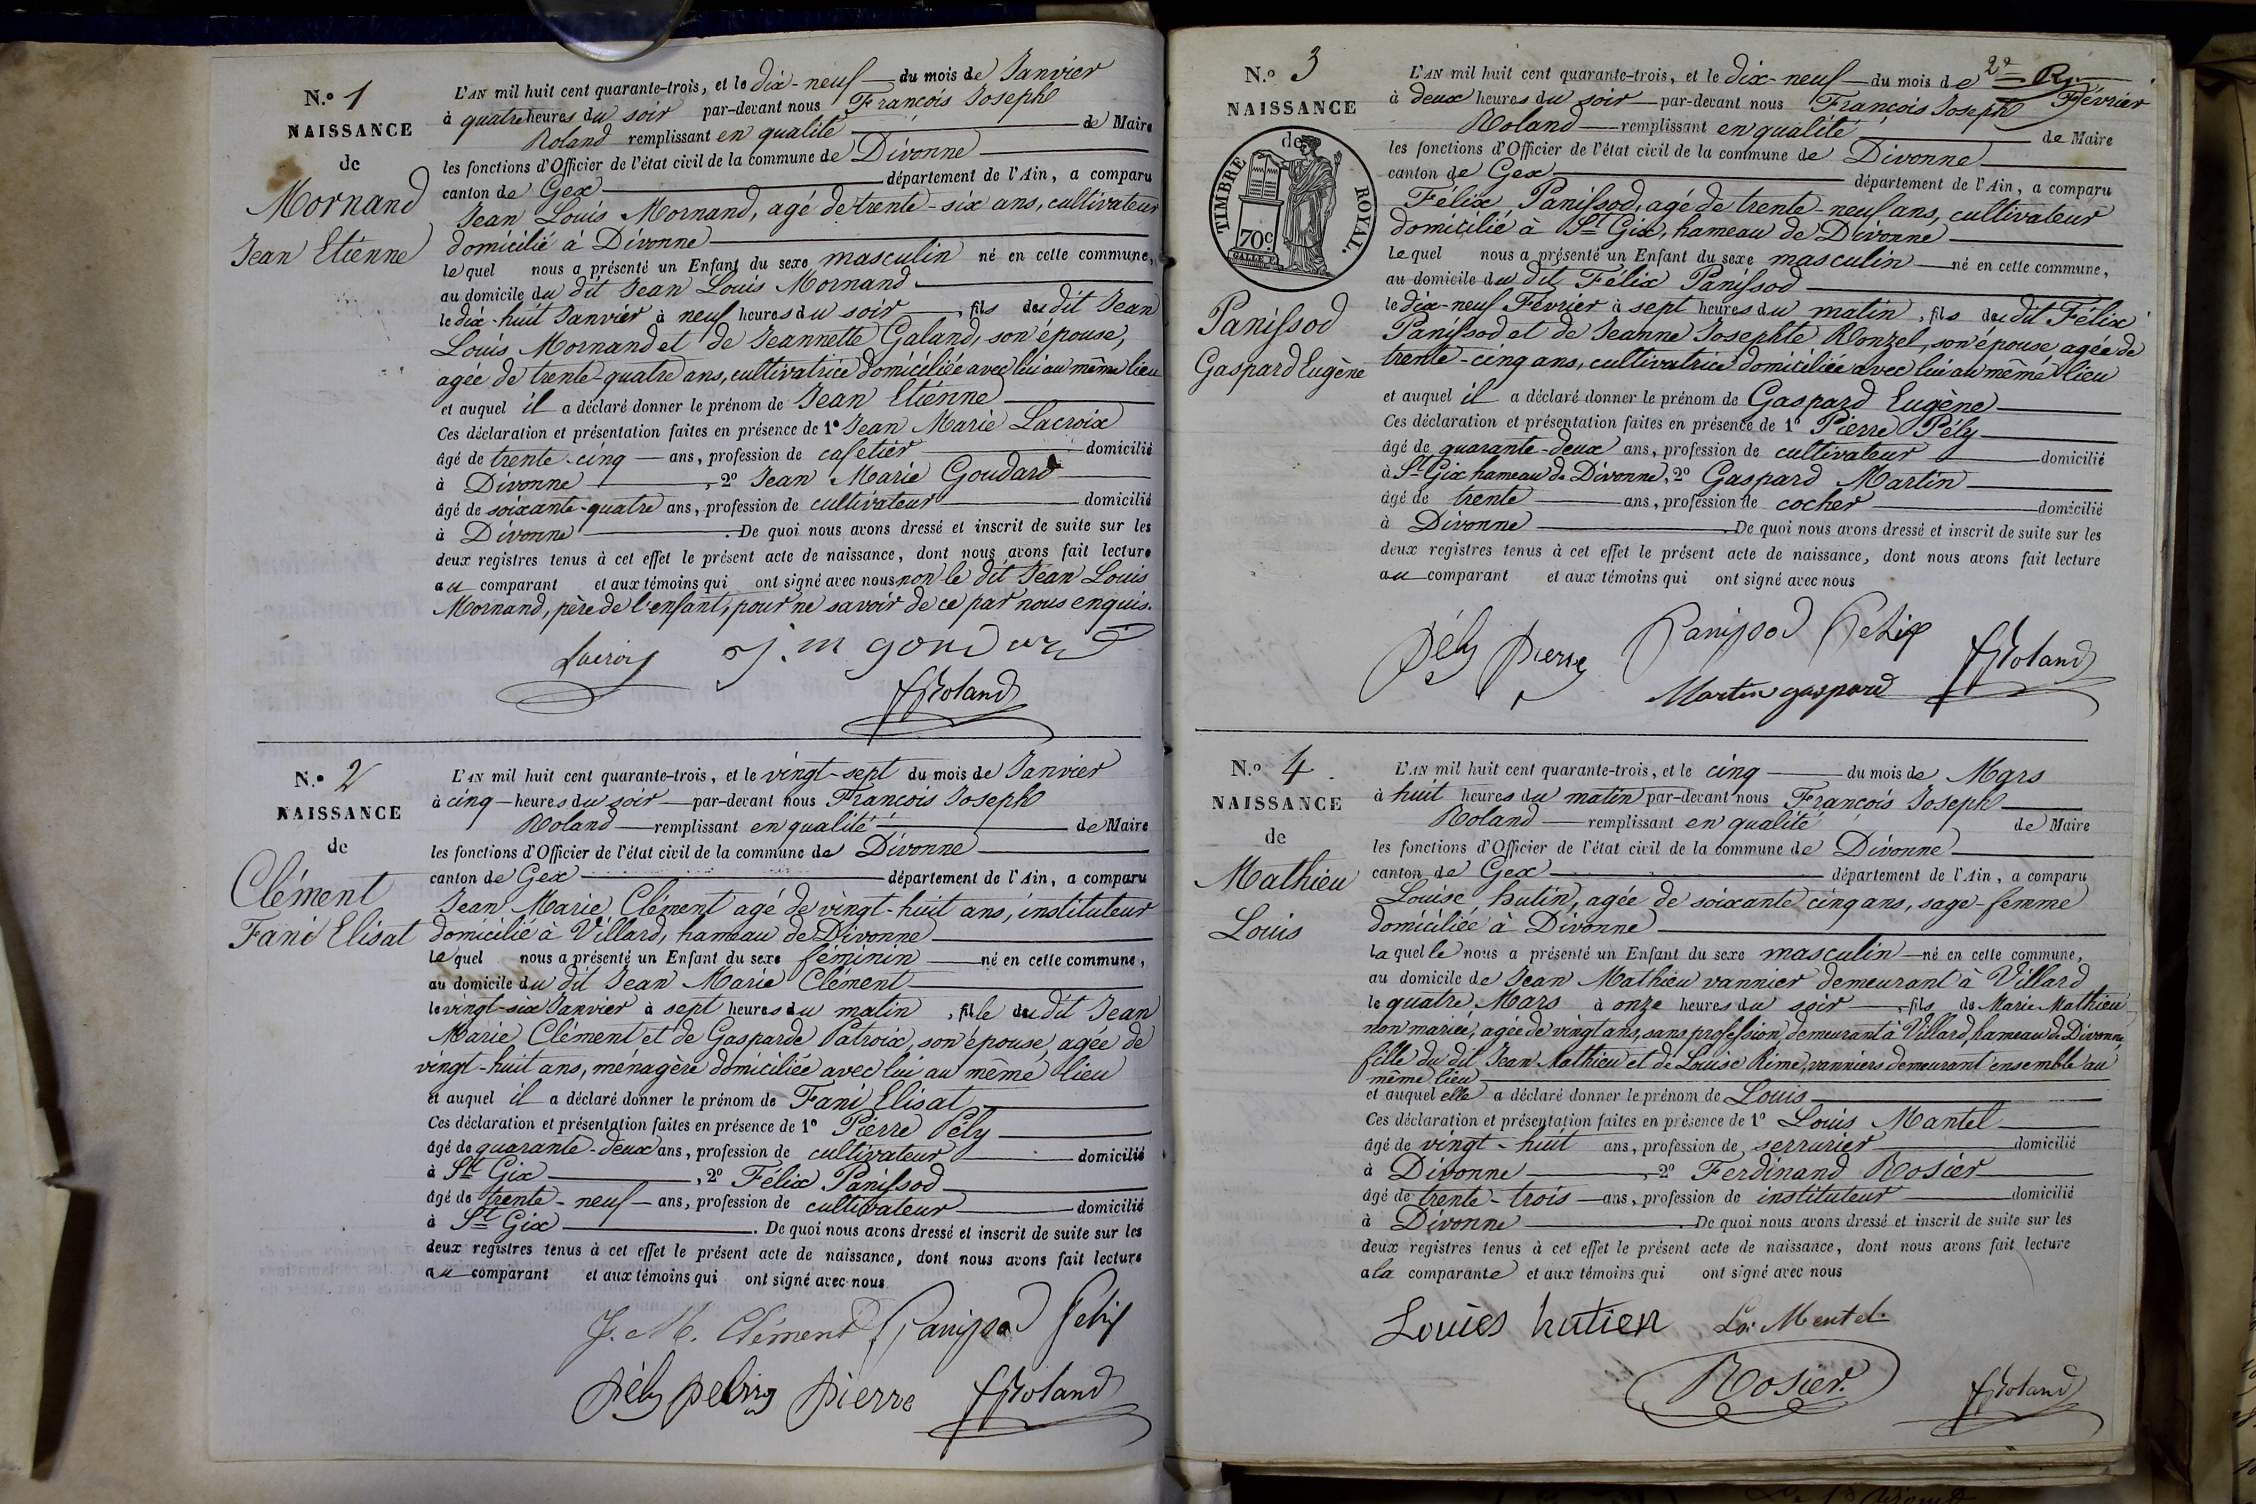 N.º 1
NAISSANCE
de
Mornand
Jean Etienne
L'AN mil huit cent quarante-trois, et le dix-neuf du mois de Janvier
à quatre heures du soir par-devant nous François Joseph
Roland remplissant en qualité de Maire
les fonctions d'Officier de l'état civil de la commune de Divonne
canton de Gex département de l'Ain, a comparu
Jean Louis Mornand, agé de trente-six ans, cultivateur
domicilié à Divonne
lequel nous a présenté un Enfant du sexe masculin né en cette commune,
au domicile du dit Jean Louis Mornand
le dix-huit Janvier à neuf heures du soir, fils du dit Jean
Louis Mornand et de Jeannette Galand, son épouse,
agée de trente-quatre ans, cultivatrice domiciliée avec lui au même lieu
et auquel il a déclaré donner le prénom de Jean Etienne
Ces déclaration et présentation faites en présence de 1º Jean Marie Lacroix
âgé de trente-cinq ans, profession de cafetier domicilié
à Divonne, 2º Jean Marie Goudard
âgé de soixante-quatre ans, profession de cultivateur domicilié
à Divonne. De quoi nous avons dressé et inscrit de suite sur les
deux registres tenus à cet effet le présent acte de naissance, dont nous avons fait lecture
au comparant et aux témoins qui ont signé avec nous non le dit Jean Louis
Mornand, père de l'enfant, pour ne savoir de ce par nous enquis.
Lacroix J. m goudard
FJRoland
N.º 2
NAISSANCE
de
Clément
Fani Elisat
L'AN mil huit cent quarante-trois, et le vingt-sept du mois de Janvier
à cinq heures du soir par-devant nous François Joseph
Roland remplissant en qualité de Maire
les fonctions d'Officier de l'état civil de la commune de Divonne
canton de Gex département de l'Ain, a comparu
Jean Marie Clément agé de vingt-huit ans, instituteur
domicilié à Villard, hameau de Divonne
lequel nous a présenté un Enfant du sexe féminin né en cette commune,
au domicile du dit Jean Marie Clément
le vingt-six Janvier à sept heures du matin, file du dit Jean
Marie Clément et de Gasparde Patroix, son épouse, agée de
vingt-huit ans, ménagère domiciliée avec lui au même lieu
et auquel il a déclaré donner le prénom de Fani Elisat
Ces déclaration et présentation faites en présence de 1º Pierre Pély
âgé de quarante-deux ans, profession de cultivateur domicilié
à St Gix, 2º Félix Panissod
âgé de trente-neuf ans, profession de cultivateur domicilié
à St Gix. De quoi nous avons dressé et inscrit de suite sur les
deux registres tenus à cet effet le présent acte de naissance, dont nous avons fait lecture
au comparant et aux témoins qui ont signé avec nous
J. M. Clément Panissod Félix
Pély pierre FJRoland
N.º 3
NAISSANCE
de
TIMBRE ROYAL.
70c.
Panissod
Gaspard Eugène
2e
L'AN mil huit cent quarante-trois, et le dix-neuf du mois de
Février
à deux heures du soir par-devant nous François Joseph
Roland remplissant en qualité de Maire
les fonctions d'Officier de l'état civil de la commune de Divonne
canton de Gex département de l'Ain, a comparu
Félix Panissod, agé de trente-neuf ans, cultivateur
domicilié à St Gix, hameau de Divonne
Lequel nous a présenté un Enfant du sexe masculin né en cette commune,
au domicile du dit Félix Panissod
le dix-neuf Février à sept heures du matin, fils du dit Félix
Panissod et de Jeanne Josephte Ronzel, son épouse agée de
trente-cinq ans, cultivatrice domiciliée avec lui au même lieu
et auquel il a déclaré donner le prénom de Gaspard Eugène
Ces déclaration et présentation faites en présence de 1º Pierre Pély
âgé de quarante-deux ans, profession de cultivateur domicilié
à St Gix hameau de Divonne, 2º Gaspard Martin
âgé de trente ans, profession de cocher domicilié
à Divonne. De quoi nous avons dressé et inscrit de suite sur les
deux registres tenus à cet effet le présent acte de naissance, dont nous avons fait lecture
au comparant et aux témoins qui ont signé avec nous
Pély pierre Panissod Félix FJRoland
Martin gaspard
N.º 4
NAISSANCE
de
Mathieu
Louis
L'AN mil huit cent quarante-trois, et le cinq du mois de Mars
à huit heures du matin par-devant nous François Joseph
Roland remplissant en qualité de Maire
les fonctions d'Officier de l'état civil de la commune de Divonne
canton de Gex département de l'Ain, a comparu
Louise hutin, agée de soixante cinq ans, sage-femme
domiciliée à Divonne
Laquelle nous a présenté un Enfant du sexe masculin né en cette commune,
au domicile de Jean Mathieu vannier demeurant à Villard
le quatre Mars à onze heures du soir, fils de Marie Mathieu
non mariée, agée de vingt ans, sans profession, demeurant à Villard, hameau de Divonne,
fille du dit Jean Mathieu et de Louise Rime, vanniers demeurant ensemble au
même lieu
et auquel elle a déclaré donner le prénom de Louis
Ces déclaration et présentation faites en présence de 1º Louis Mantel
âgé de vingt-huit ans, profession de serrurier domicilié
à Divonne, 2º Ferdinand Rosier
âgé de trente-trois ans, profession de instituteur domicilié
à Divonne. De quoi nous avons dressé et inscrit de suite sur les
deux registres tenus à cet effet le présent acte de naissance, dont nous avons fait lecture
à la comparante et aux témoins qui ont signé avec nous
Louies hutien Ls. Mentel
Rosier. FJRoland